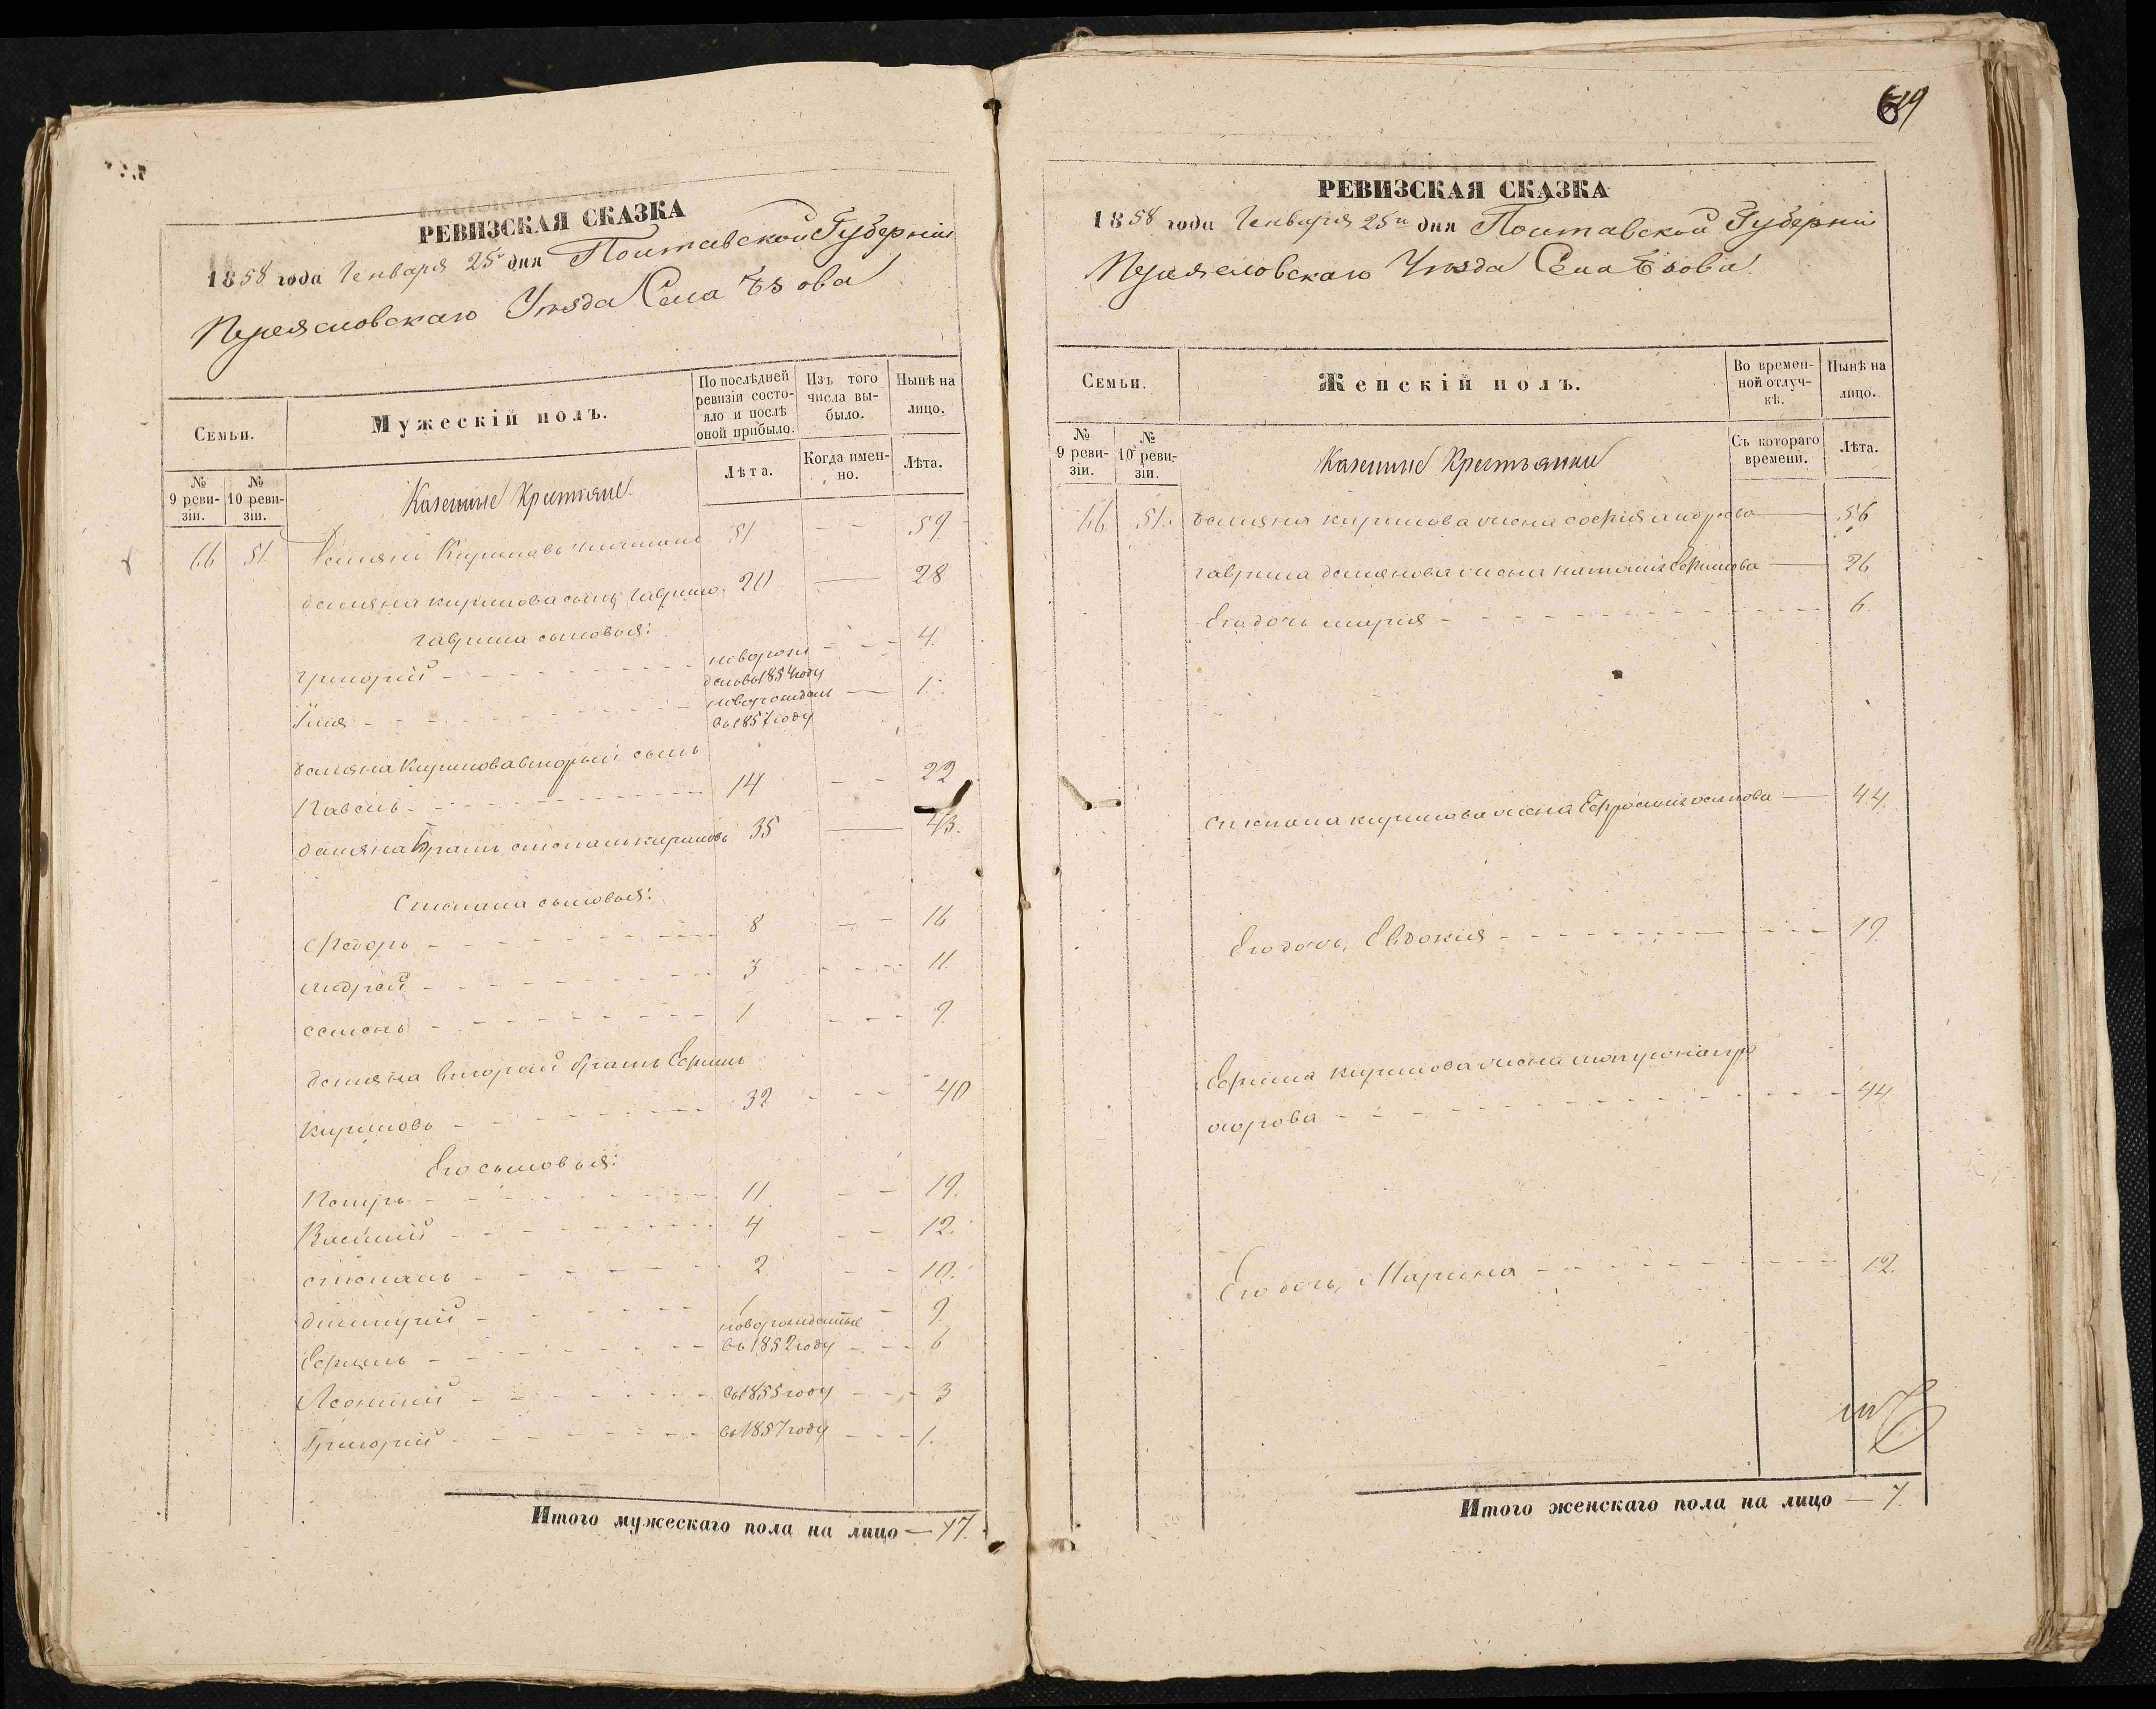 РЕВИЗСКАЯ СКАЗКА
1858 года Генваря 25 дня Полтавской Губерніи
Переясловскаго Уѣзда Села Ѣзова
Семьи.
Мужескій полъ.
По послѣдней ревизіи состояло и послѣ оной прибыло.
Изъ того числа выбыло.
Нынѣ на лицо.
№ 9 ревизіи.
№ 10 ревизіи.
Казенные Крестьяне
Лѣта.
Когда именно.
Лѣта.
66 51. Демянъ Кириловъ 51 - - 59
демяна кирилова сынъ Гаврило 20 — 28
гаврила сыновья:
григорій - - - новорож - - 4.
денъ въ 1854 году
Илія - - - новорожденъ — 1.
въ 1857 году
демяна Кирилова вторый сынъ
Павелъ - - - 14 - - 22
демяна братъ степанъ кириловъ 35 — 43.
Степана сыновья:
Федоръ - - - 8 - - 16
андрей - - - 3 - - - 11.
семенъ - - - 1 - - - 9.
демяна вторый братъ Ефимъ
кириловъ - - - 32 - - - 40
Его сыновья:
Петръ - - - 11 - - 19.
Василій - - - 4 - - 12.
степанъ - - - 2 - - 10.
димитрій - - - 1 - 9.
новорожденные
Ефимъ - - - въ 1852 году - - - 6
Леонтій - - - въ 1855 году - - - 3
Григорій - - - въ 1857 году - - - 1.
Итого мужескаго пола на лицо — 17.
619
РЕВИЗСКАЯ СКАЗКА
1858 года Генваря 25 го дня Полтавской Губерніи
Переясловскаго Уѣзда Села Ѣзова
Семьи.
Женскій полъ.
Во временной отлучкѣ.
Нынѣ на лицо.
№ 9 ревизіи.
№ 10 ревизіи.
Казенные Крестьянки
Съ котораго времени.
Лѣта.
66 51. демяна кирилова жена софія андреева — 56
гаврила демянова жена наталія Ефимова — 26
Его дочь марія - - - 6.
степана кирилова жена Ефросинія осипова — 44.
Его дочь, Евдокия - - - 19.
Ефима кирилова жена
- - - 44
Его дочь, Марина - - - 12.
Итого женскаго пола на лицо — 7.